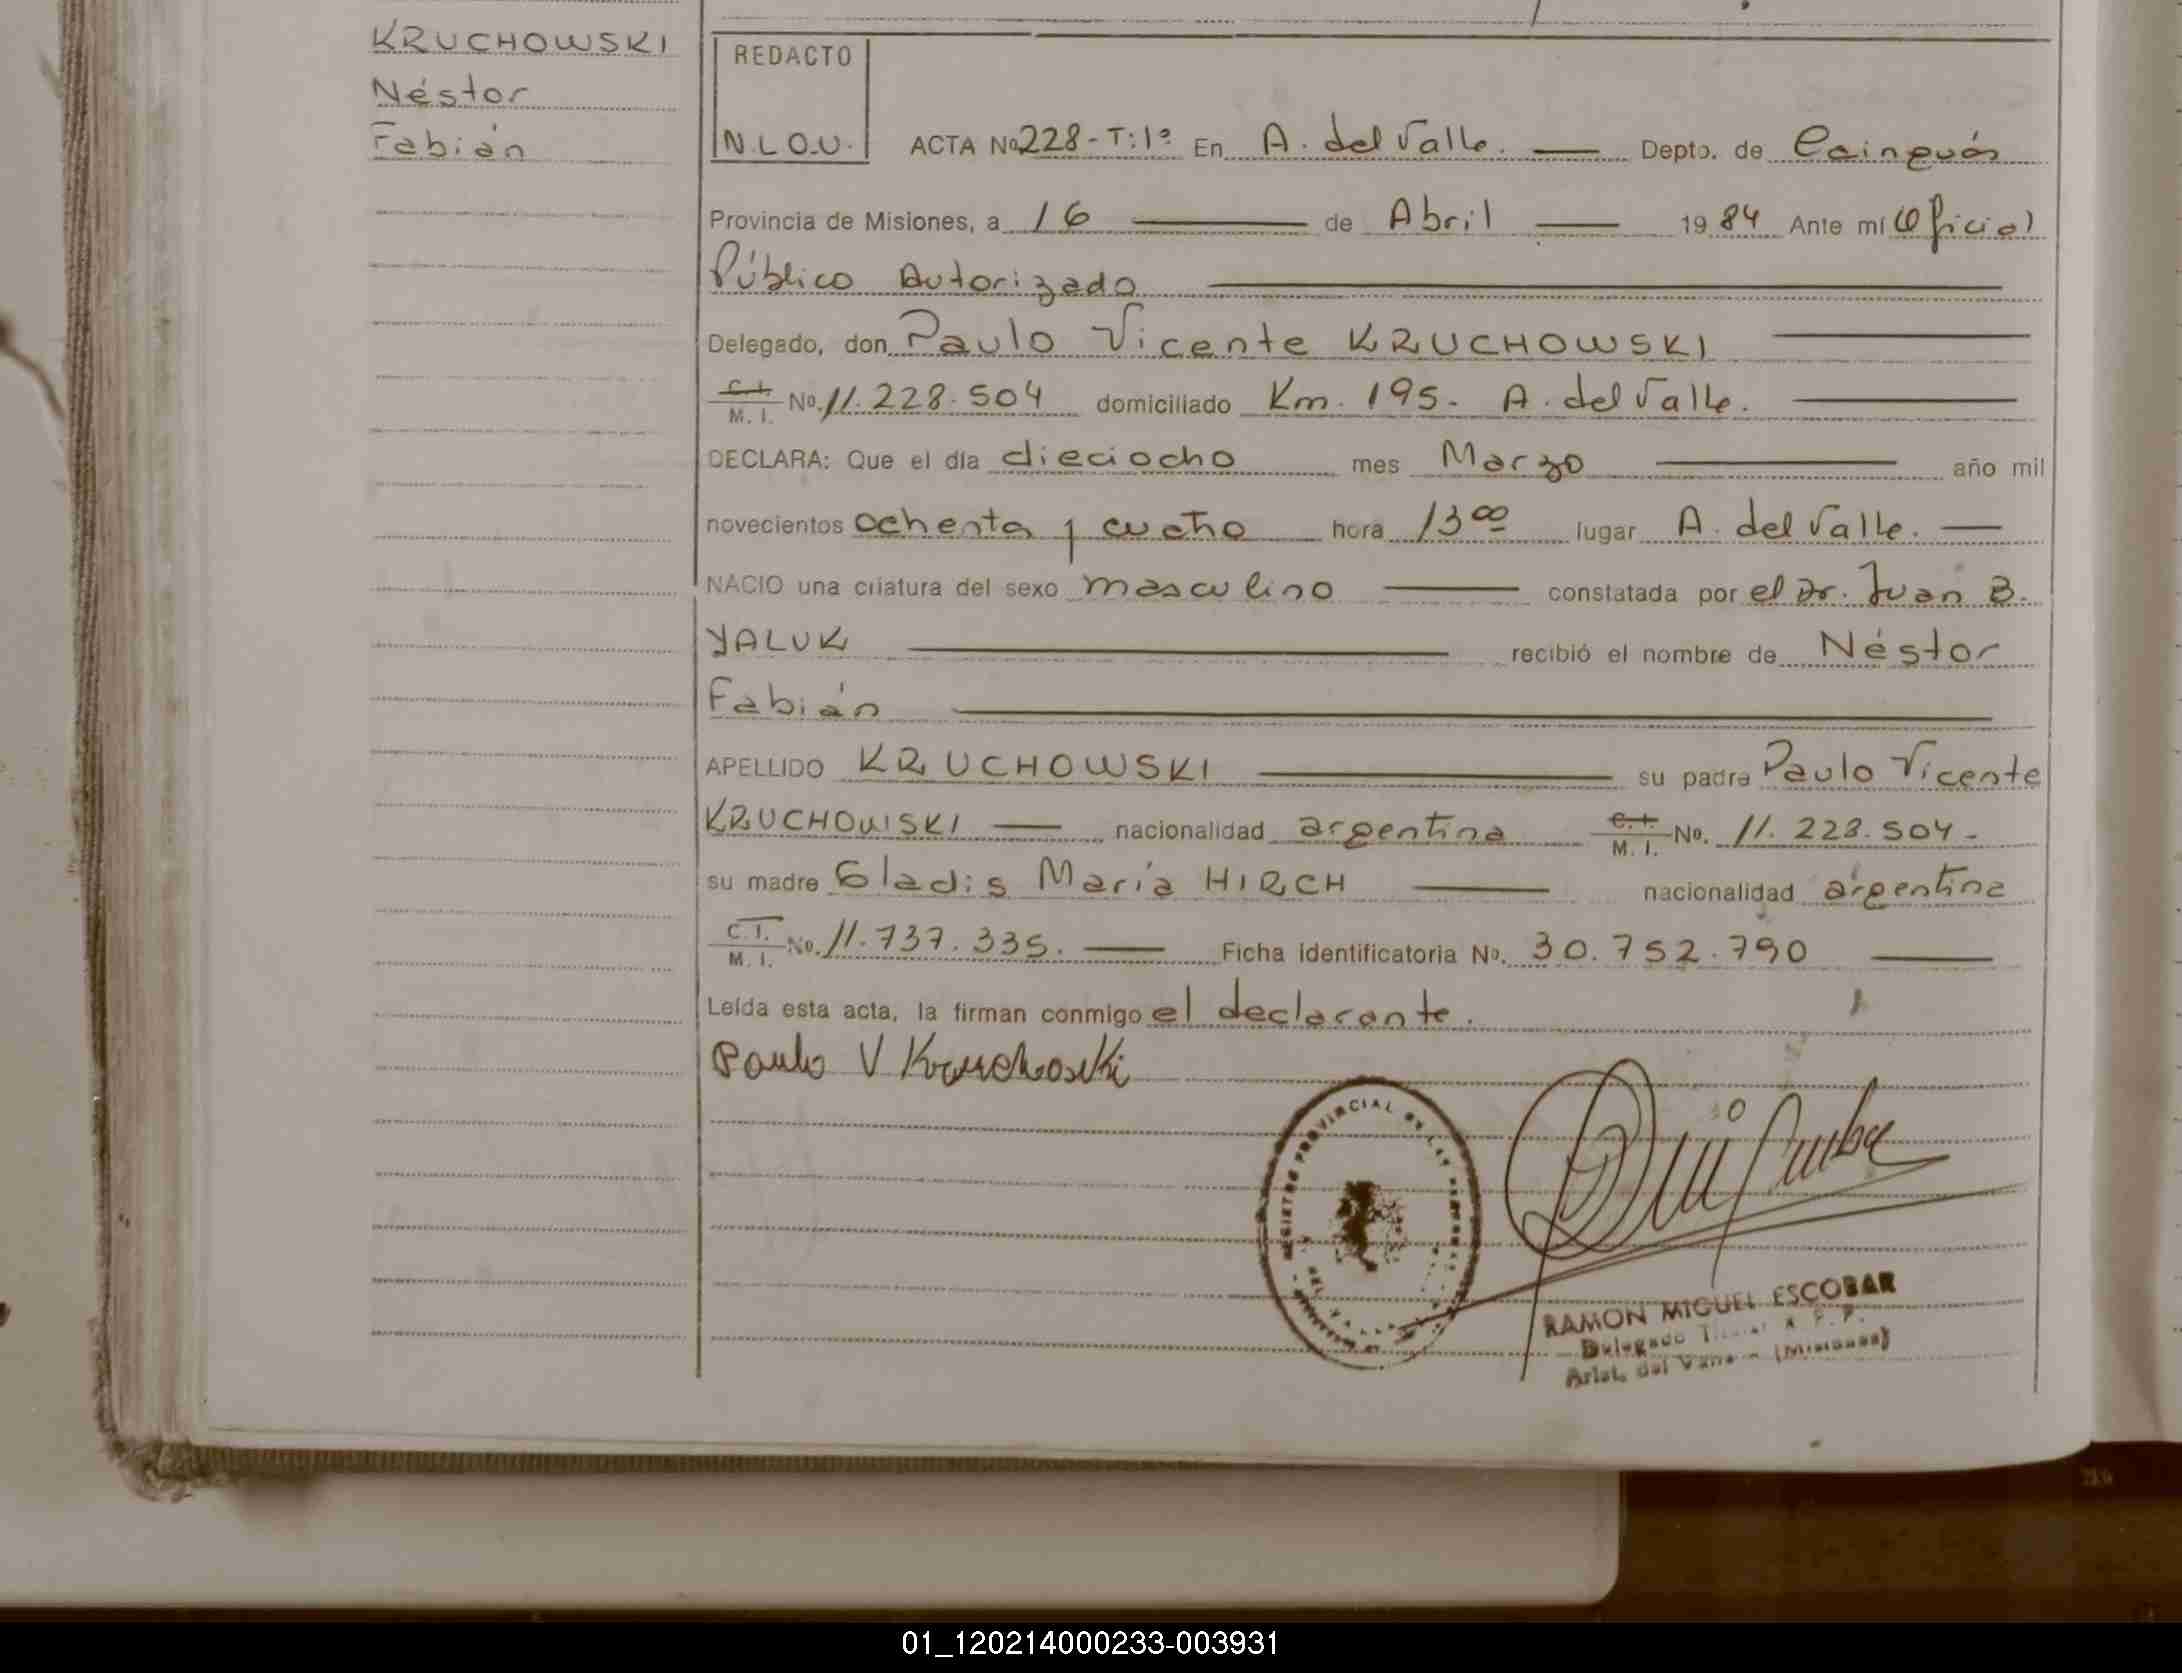 KRUCHOWSKI
Néstor
Fabián
REDACTO
N.L.O.U.
ACTA Nº 228-T:1º En A. del Valle. Depto. de Cainguás
Provincia de Misiones, a 16 de Abril 1984 Ante mí (Oficial
Público Autorizado
Delegado, don Paulo Vicente KRUCHOWSKI
C.I. M. I. Nº. 11.228.504 domiciliado Km. 195. A. del Valle.
DECLARA: Que el día dieciocho mes Marzo año mil
novecientos ochenta y cuatro hora 13 00 lugar A. del Valle.
NACIO una criatura del sexo masculino constatada por el Dr. Juan B.
YALUK recibió el nombre de Néstor
Fabián
APELLIDO KRUCHOWSKI su padre Paulo Vicente
KRUCHOWSKI nacionalidad argentina C.I. M. I. Nº. 11.228.504-
su madre Gladis María HIRCH nacionalidad argentina
C.I. M. I. No. 11.737.335. Ficha identificatoria Nº. 30.752.790
Leída esta acta, la firman conmigo el declarante.
Paulo V Kruchoski
REGISTRO PROVINCIAL DE LAS
RAMON MIGUEL ESCOBAR
Delegado
Arist. del Valle - (Misiones)
01_120214000233-003931